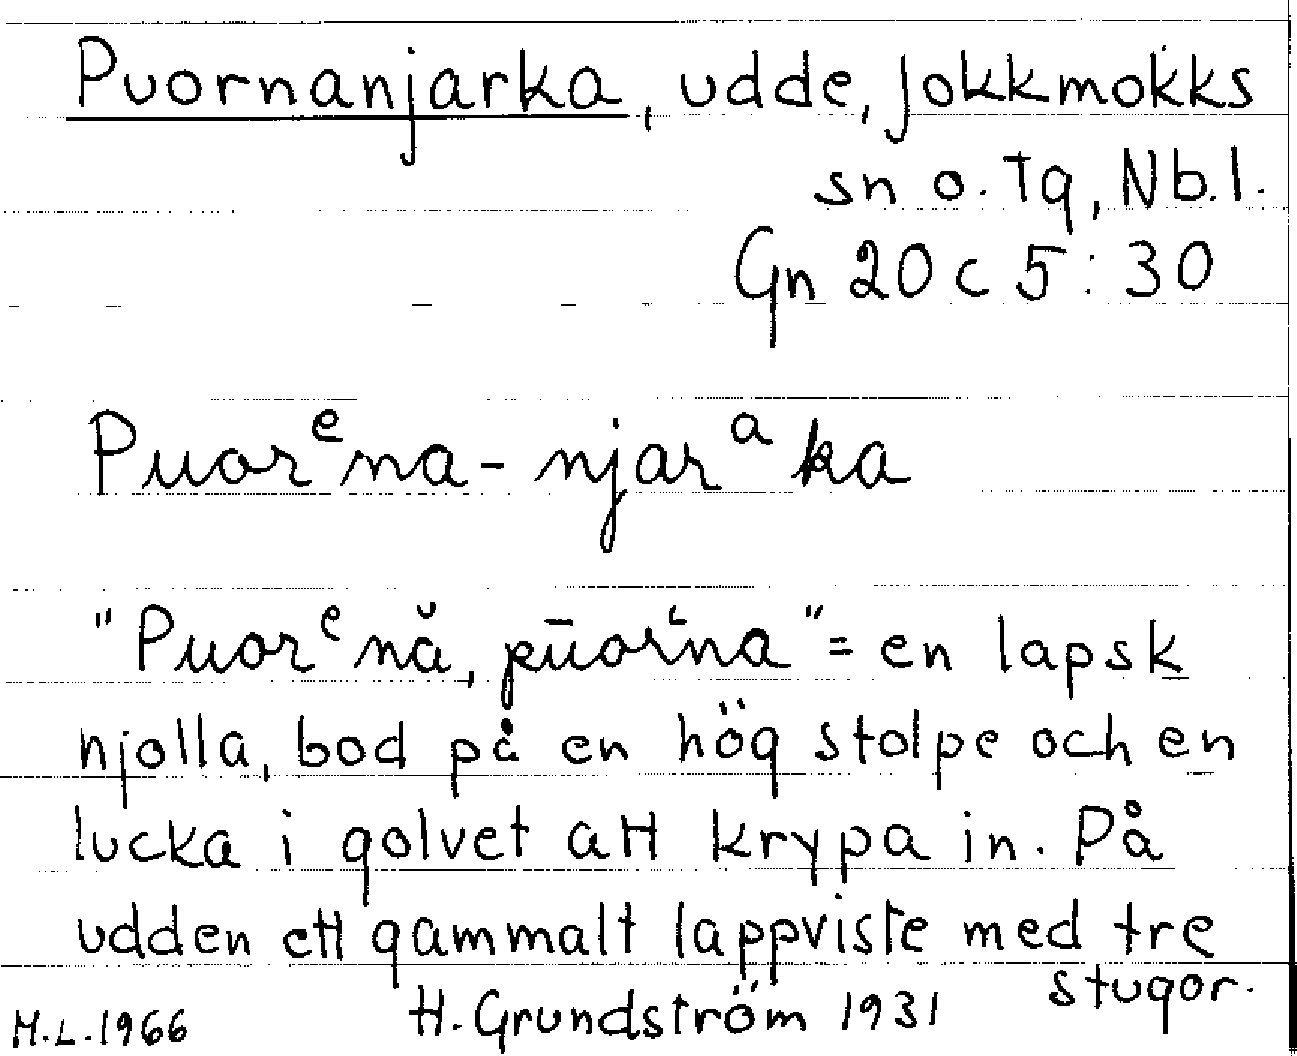 Puornanjarka, udde, Jokkmokks
sn o. Tg, Nb.l.
Gn 20 c 5:30
Puorᵉna-njarᵃka
"Puorᵉnă, pūor'na" = en lapsk
njolla, bod på en hög stolpe och en
lucka i golvet att krypa in. På
udden ett gammalt lappviste med tre
stugor.
M.L. 1966 H. Grundström 1931